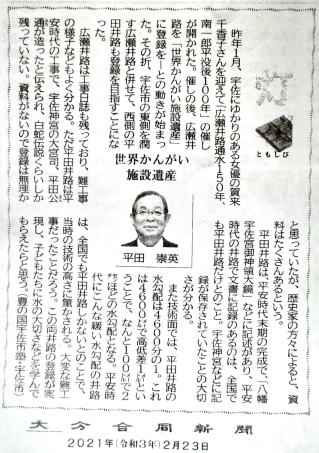 ともしび
昨年1月、宇佐にゆかりのある女優の賀来
千香子さんを迎えて「広瀬井路通水150年、
南一郎平没後100年」の催し
が開かれた。催しの後、広瀬井
路を「世界かんがい施設遺産」
に登録を―との動きが始まっ
た。その折、宇佐市の東側を潤
す広瀬井路と併せて、西側の平
田井路も登録を目指すことにな
った。
広瀬井路は工事日誌も残っており、難工事
の様子などもよく分かる。ただ平田井路は平
安時代の工事で、宇佐神宮の大宮司、平田公
通が造ったと伝えられ、白蛇伝説くらいしか
残っていない。資料がないので登録は無理か
世界かんがい
施設遺産
平田 崇英
と思っていたが、歴史家の方々によると、資
料はたくさんあるという。
平田井路は、平安時代末期の完成で、「八幡
宇佐宮御神領大鏡」などに記述があり、平安
時代の井路で文書に記録のあるのは、全国で
も平田井路だけとのこと。宇佐神宮などに記
録が保存されていたことの大切
さが分かる。
また技術面では、平田井路の
水勾配は4600分の1。これ
は4600㍍で高低差1㍍とい
うことで、なんと100㍍で2
㌢ほどの水勾配となる。平安時
代にこんな緩い水勾配の井路
は、全国でも平田井路しかないとのことで、
当時の技術の高さに驚かされる。大変な難工
事だったことだろう。この両井路の登録が実
現し、子どもたちに水の大切さなどを学んで
もらえたらと思う。(豊の国宇佐市塾・宇佐市)
大分合同新聞
2021年(令和3年)2月23日